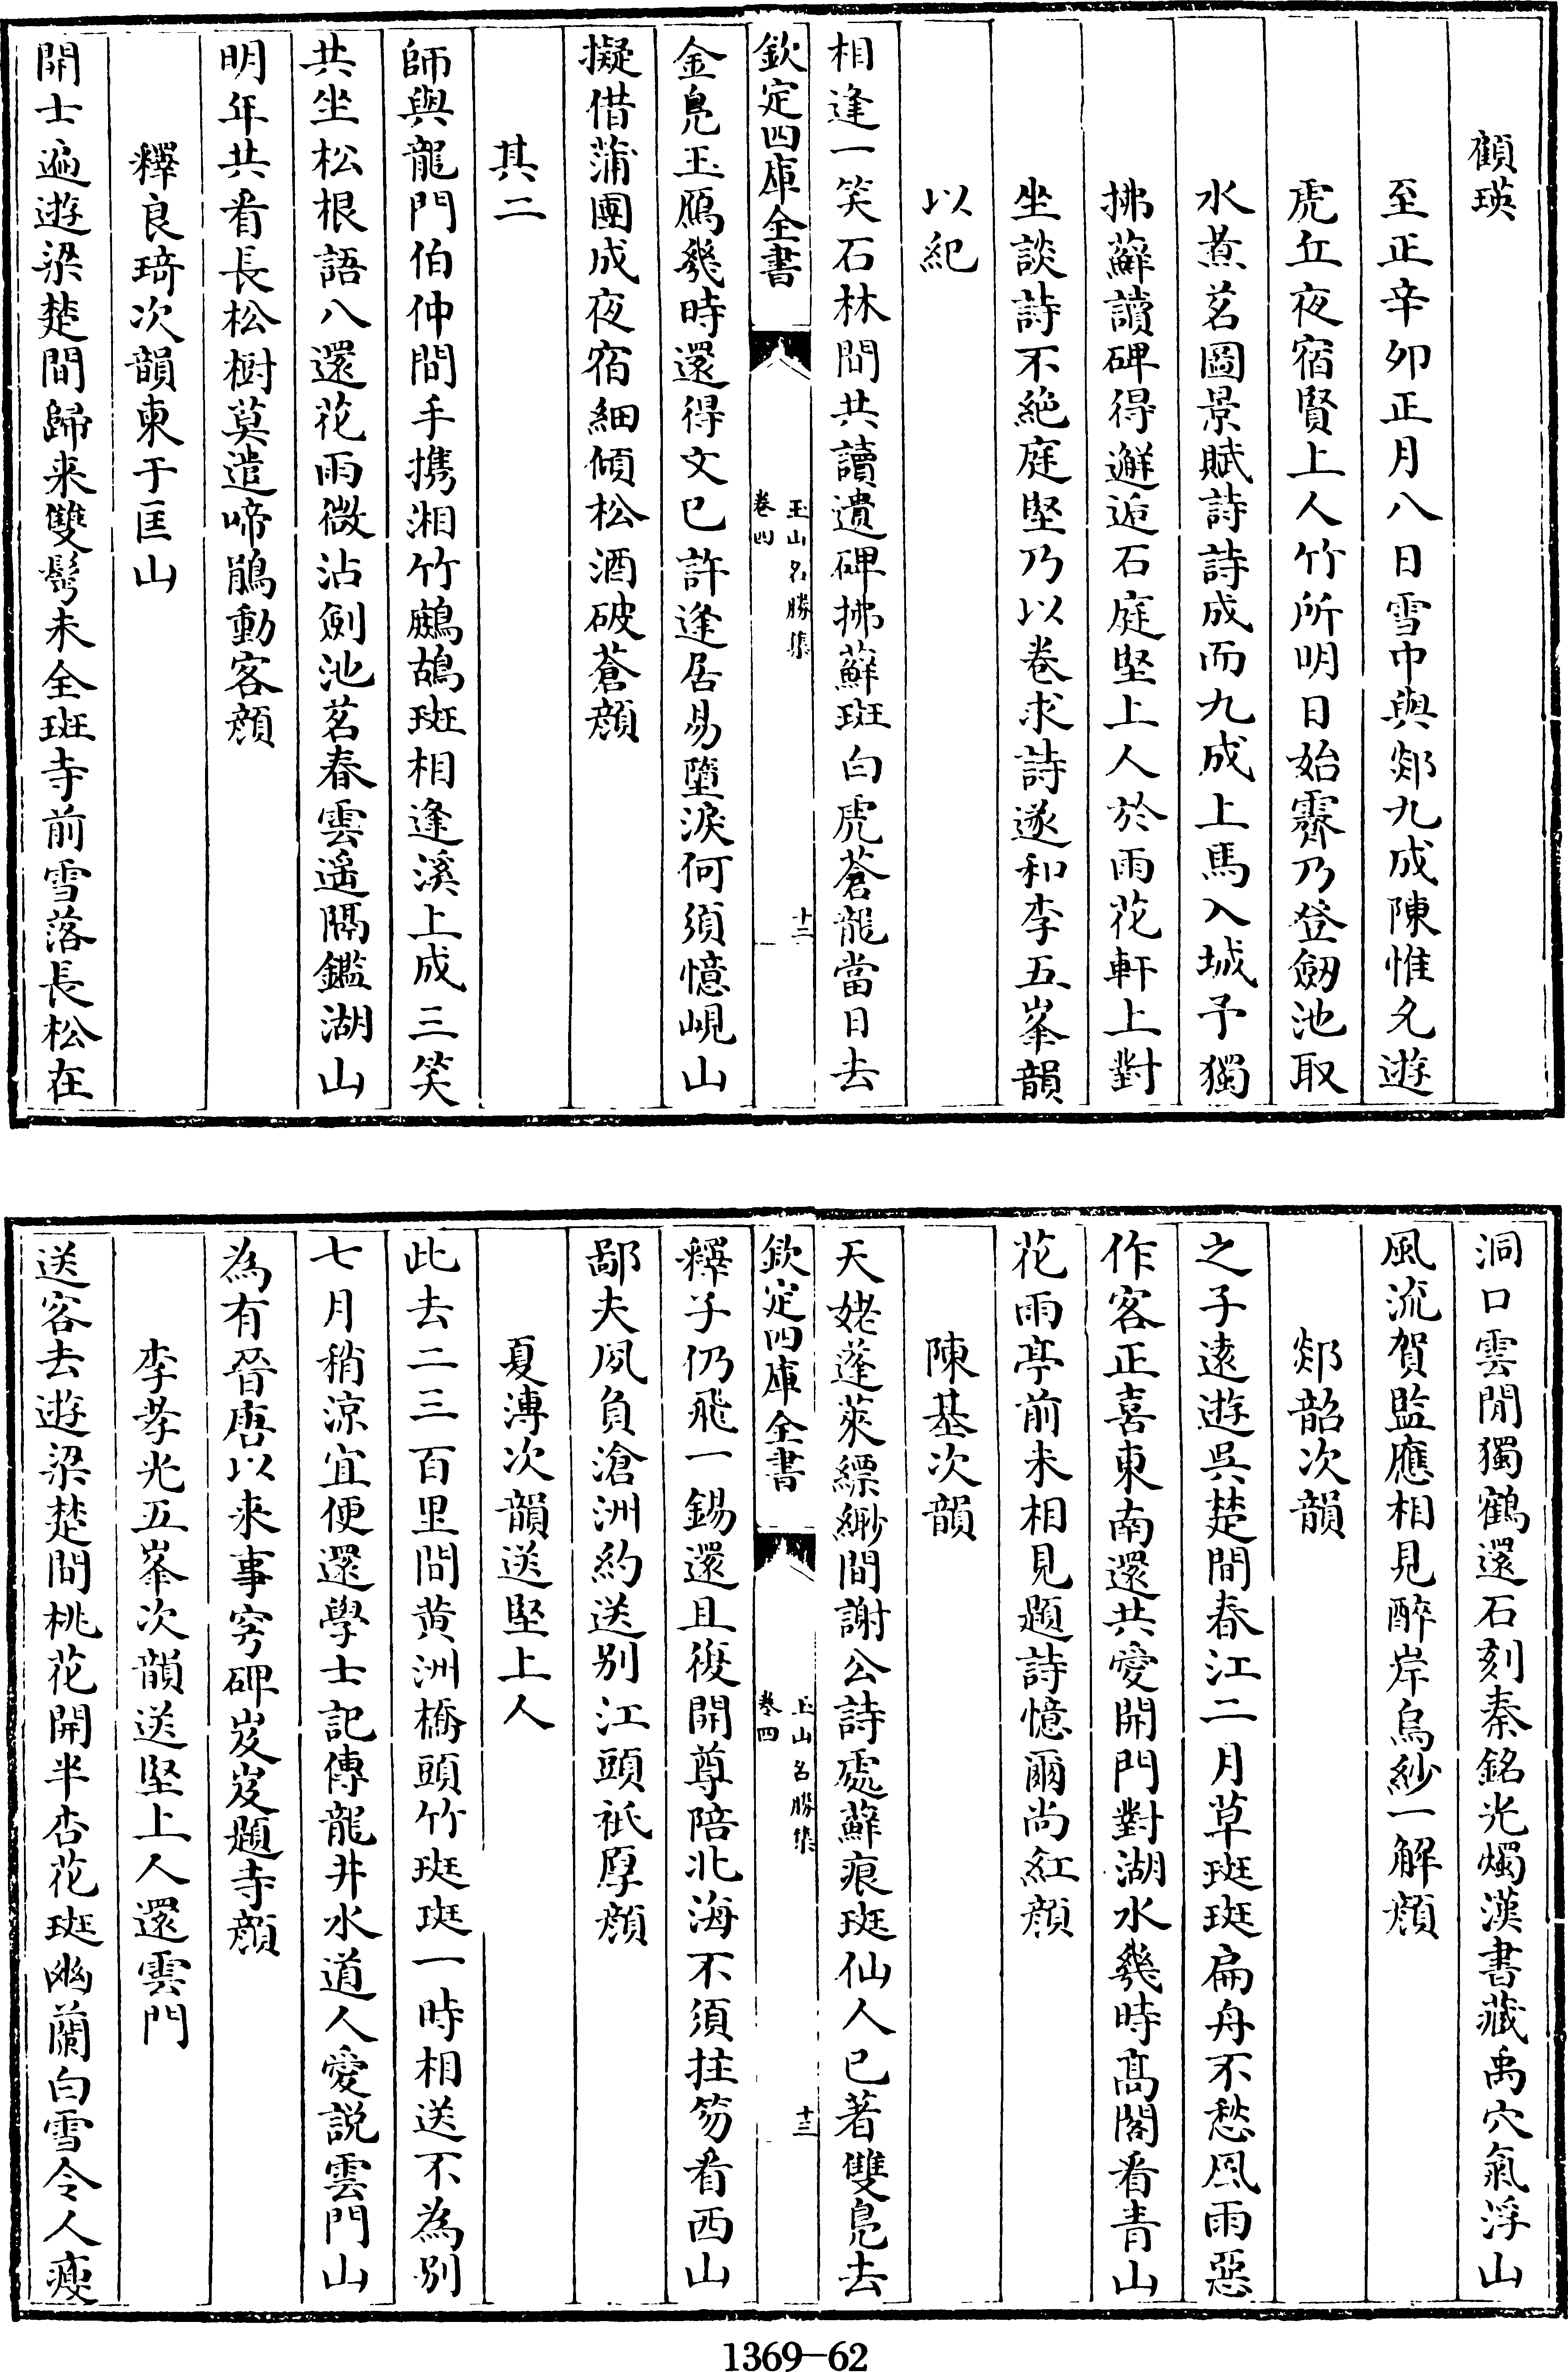 顧瑛
至正辛卯正月八日雪中與郯九成陳惟允遊
虎丘夜宿賢上人竹所明日始霽乃登劒池取
水煮茗圖景賦詩詩成而九成上馬入城予獨
拂蘚讀碑得邂逅石庭堅上人於雨花軒上對
坐談詩不絶庭堅乃以巻求詩遂和李五峯韻
以紀
相逢一笑石林間共讀遺碑拂蘚斑白虎蒼龍當日去
欽定四庫全書
玉山名勝集
卷四
十二
金鳬玉鴈幾時還得文已許逢居易墮淚何須憶峴山
擬借蒲團成夜宿細傾松酒破蒼顔
其二
師與龍門伯仲間手携湘竹鷓鴣斑相逢溪上成三笑
共坐松根語八還花雨微沾劍池茗春雲遥隔鑑湖山
明年共看長松樹莫遣啼鵑動客顔
釋良琦次韻東于匡山
開士遍遊梁楚間歸來雙鬓未全斑寺前雪落長松在
洞口雲閒獨鶴還石刻秦銘光燭漢書藏禹穴氣浮山
風流賀監應相見醉岸烏紗一解顔
郯韶次韻
之子逺遊呉楚間春江二月草斑斑扁舟不愁風雨惡
作客正喜東南還共愛開門對湖水幾時髙閣看青山
花雨亭前未相見題詩憶爾尚紅顔
陳基次韻
天姥蓬萊縹緲間謝公詩處蘚痕斑仙人已著雙鳬去
欽定四庫全書
玉山名勝集
卷四
十三
釋子仍飛一錫還且復開尊陪北海不須拄笏看西山
鄙夫夙負滄洲約送别江頭祗厚顔
夏溥次韻送堅上人
此去二三百里間黄洲橋頭竹斑斑一時相送不為别
七月稍涼宜便還學士記傳龍井水道人愛説雲門山
為有晉唐以來事穹碑岌岌題寺顔
李孝光五峯次韻送堅上人還雲門
送客去遊梁楚間桃花開半杏花斑幽蘭白雪令人瘦
1369—62